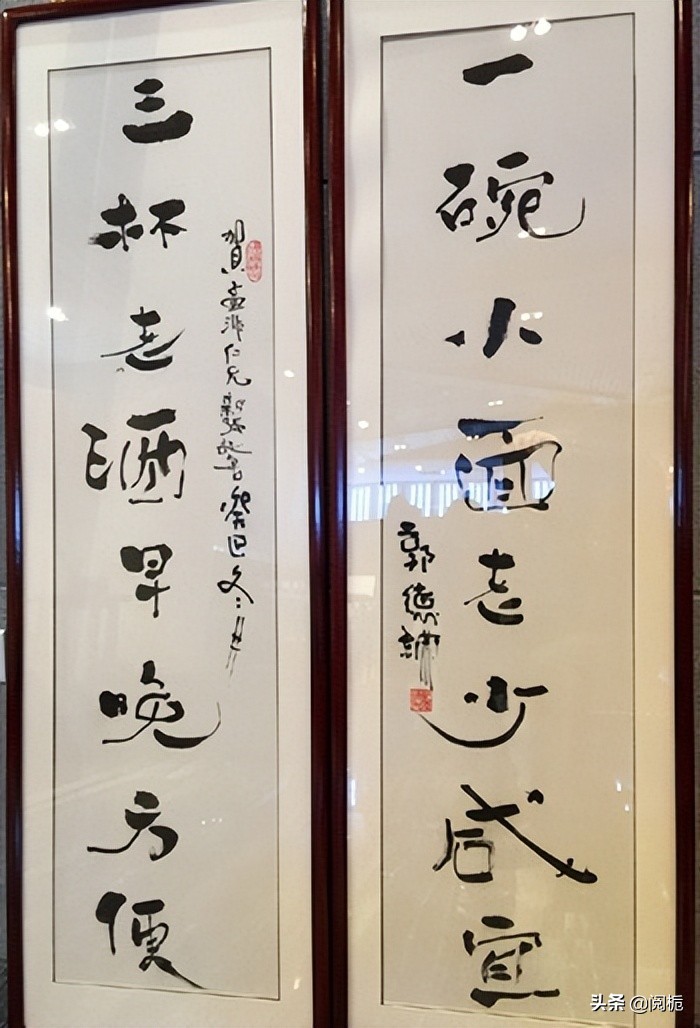 三杯老酒早晚方便
賀孟非仁兄新張 癸巳冬
一碗小面老少咸宜
郭德綱
头条 @阅栀